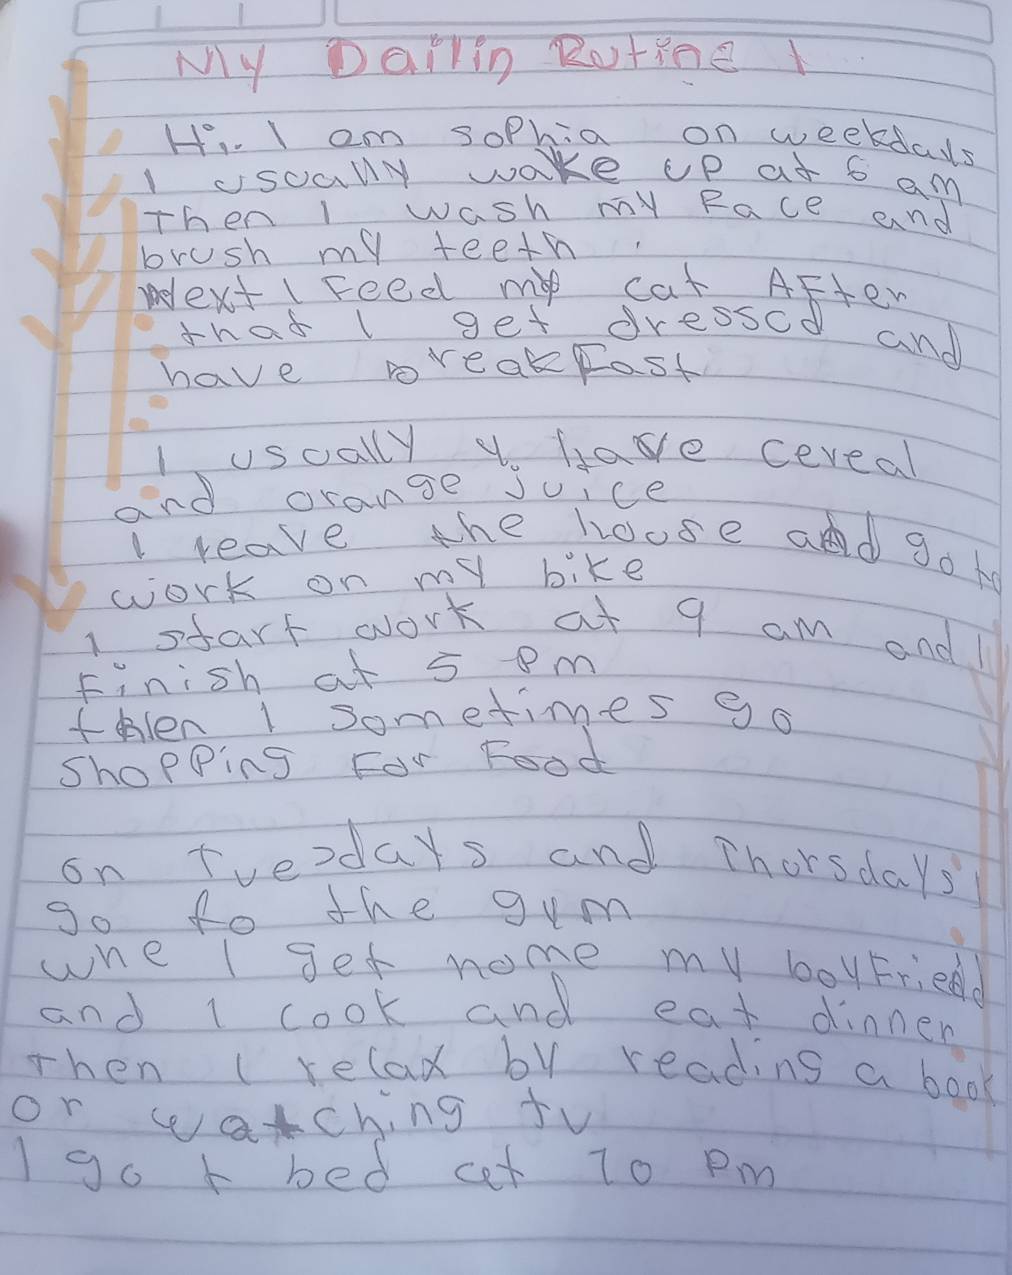 My Dailin Rutine 1
Hi. I am sophia on weekdays
I usually wake up at 6 am
Then I wash my Face and
brush my teeth.
Next I Feed my cat AFter
that I get dressed and
have breakFast
I usually y. have cereal
and orange juice
I leave the house and go to
work on my bike
I start work at 9 am and I
Finish at 5 pm
then I sometimes go
shopping For Food
on Tuesdays and Thursdays I
go to the gym
whe I get home my boyFriend
and I cook and eat dinner
Then I relax by reading a book
or watching tv
I go t bed at 10 pm